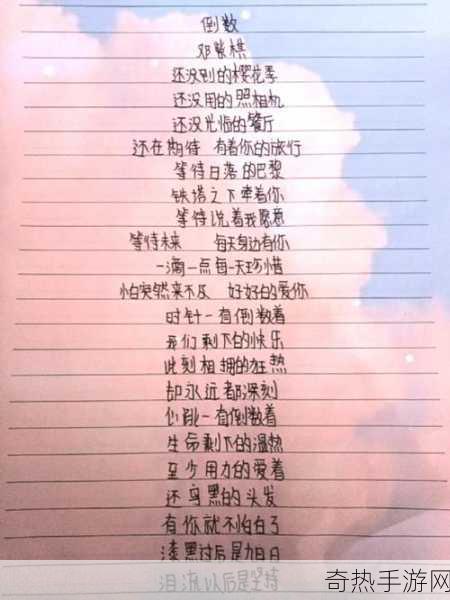 倒数
邓紫棋
还没到的樱花季
还没用的照相机
还没光临的餐厅
还在期待 有着你的旅行
等待日落的巴黎
铁塔之下牵着你
等待说着我愿意
等待未来 每天身边有你
一滴一点每一天珍惜
怕突然来不及 好好的爱你
时针一直倒数着
我们剩下的快乐
此刻相拥的狂热
却永远都深刻
心跳一直倒数着
生命剩下的温热
至少用力的爱着
还乌黑的头发
有你就不怕白了
漆黑过后是旭日
泪流以后是坚持
奇热手游网